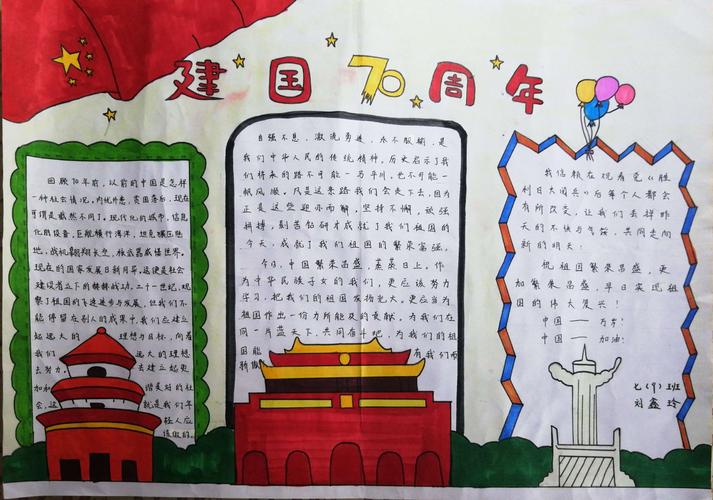 建国70周年
回顾70年前，以前的中国是怎样
一种社会情况，内忧外患，贫困落后，现在
可谓是截然不同了。现代化的城市，信息
化的设备，巨舰横行海洋，坦克碾压陆
地，战机翱翔长空，核武器威慑世界。
现在的国家发展日新月异，这便是社会
建设者立下的赫赫战功。二十一世纪，观
祖国的飞速进步与发展，但我们不
能停留在别人的成果中，我们应建立
起远大的理想与目标，向着
我们远大的理想
去努力。去建立起更
加和谐美好的社
会，这就是我们年
轻人应
该做的。
自强不息，激流勇进，永不服输，是
我们中华人民的传统精神，历史启示了我
们将来的路不可能一马平川，也不可能一
帆风顺。凡是这条路我们会走下去，因为
正是这些迎亦而解，坚持不懈，顽强
拼搏，刻苦钻研才成就了我们祖国的
今天，成就了我们祖国的繁荣富强。
今日，中国繁荣昌盛，蒸蒸日上。作
为中华民族子女的我们，更应该努力
学习，把我们的祖国发扬光大。更应当为
祖国作出一份力所能及的贡献。为我们在
同一片蓝天下，共同奋斗吧，为我们的祖
国能有我们而
骄傲
我信赖在观看完《胜
利日大阅兵》后每个人都会
有所改变，让我们丢掉昨
天的不快与气馁，共同走向
新的明天！
祝祖国繁荣昌盛，更
加繁荣昌盛，早日实现祖
国的伟大复兴！
中国——万岁！
中国——加油！
七（9）班
刘鑫玲